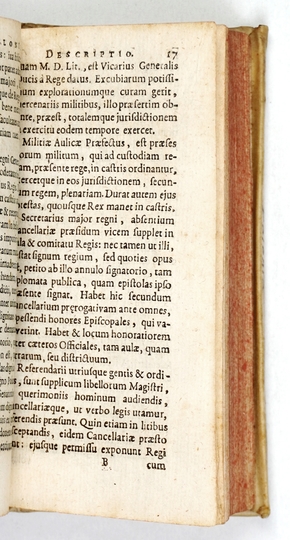 DESCRIPTIO. 17
nam M. D. Lit., est Vicarius Generalis
Ducis à Rege datus. Excubiarum potissi-
mum explorationumque curam gerit,
mercenariis militibus, illo præsertim ob-
præest, totalemque jurisdictionem
exercitu eodem tempore exercet.
Militiæ Aulicæ Præfectus, est præses
eorum militum, qui ad custodiam re-
præsente rege, in castris ordinantur,
exercetque in eos jurisdictionem, secun-
regem, plenariam. Durat autem ejus
potestas, quousque Rex manet in castris.
Secretarius major regni, absentium
Cancellariæ præsidum vicem supplet in
& comitatu Regis: nec tamen ut illi,
stat signum regium, sed quoties opus
petito ab illo annulo signatorio, tam
diplomata publica, quam epistolas ipso
præsente signat. Habet hic secundum
Cancellarium prærogativam ante omnes,
honores Episcopales, qui va-
Habet & locum honoratiorem
inter cæteros Officiales, tam aulæ, quam
terrarum, seu districtuum.
Referendarii utriusque gentis & ordi-
sunt supplicum libellorum Magistri,
querimoniis hominum audiendis,
Cancellariæque, ut verbo legis utamur,
referendis præsunt. Quin etiam in litibus
eidem Cancellariæ præsto
ejusque permissu exponunt Regi
B cum